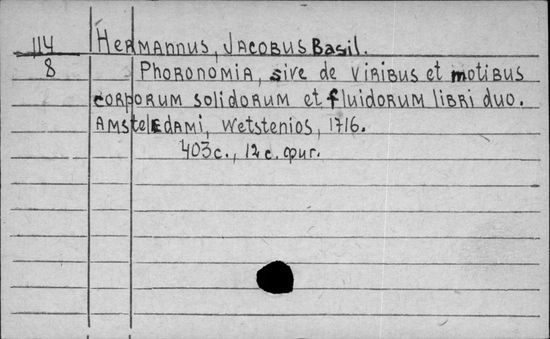 114 Hermannus, Jacobus Basil.
8 Phoronomia, sive de viribus et motibus
corporum solidorum et fluidorum libri duo.
Amsteledami, Wetstenios, 1716.
403 с., 12 с. фиг.